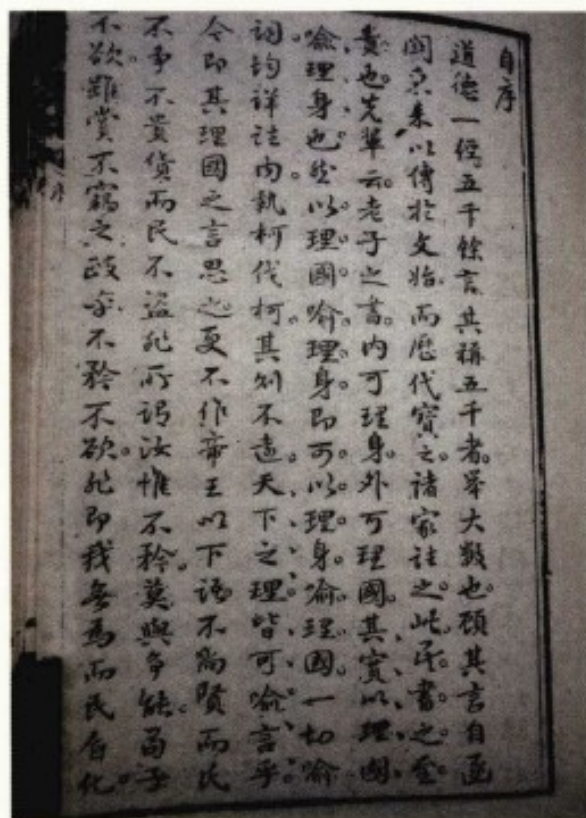 自序
道德一經。五千餘言。其稱五千者。举大數也。顧其言自函
關東來。以傳於文始。而歷代寶之。諸家註之。此民書之至
貴也。先輩云。老子之書。內可理身。外可理國。其實以理國
喻理身也。然以理國喻理身。即可以理身喻理國。一切喻
詞均詳註內。執柯伐柯。其則不遠。天下之理皆可喻言乎。
今即其理國之言思之。更不作帝王以下語。不尚賢而民
不爭。不貴貨而民不盜。非所謂汝惟不矜。莫與爭能。苟子
不欲。雖賞不竊之政乎。不矜不欲。非即我無為而民自化。
序